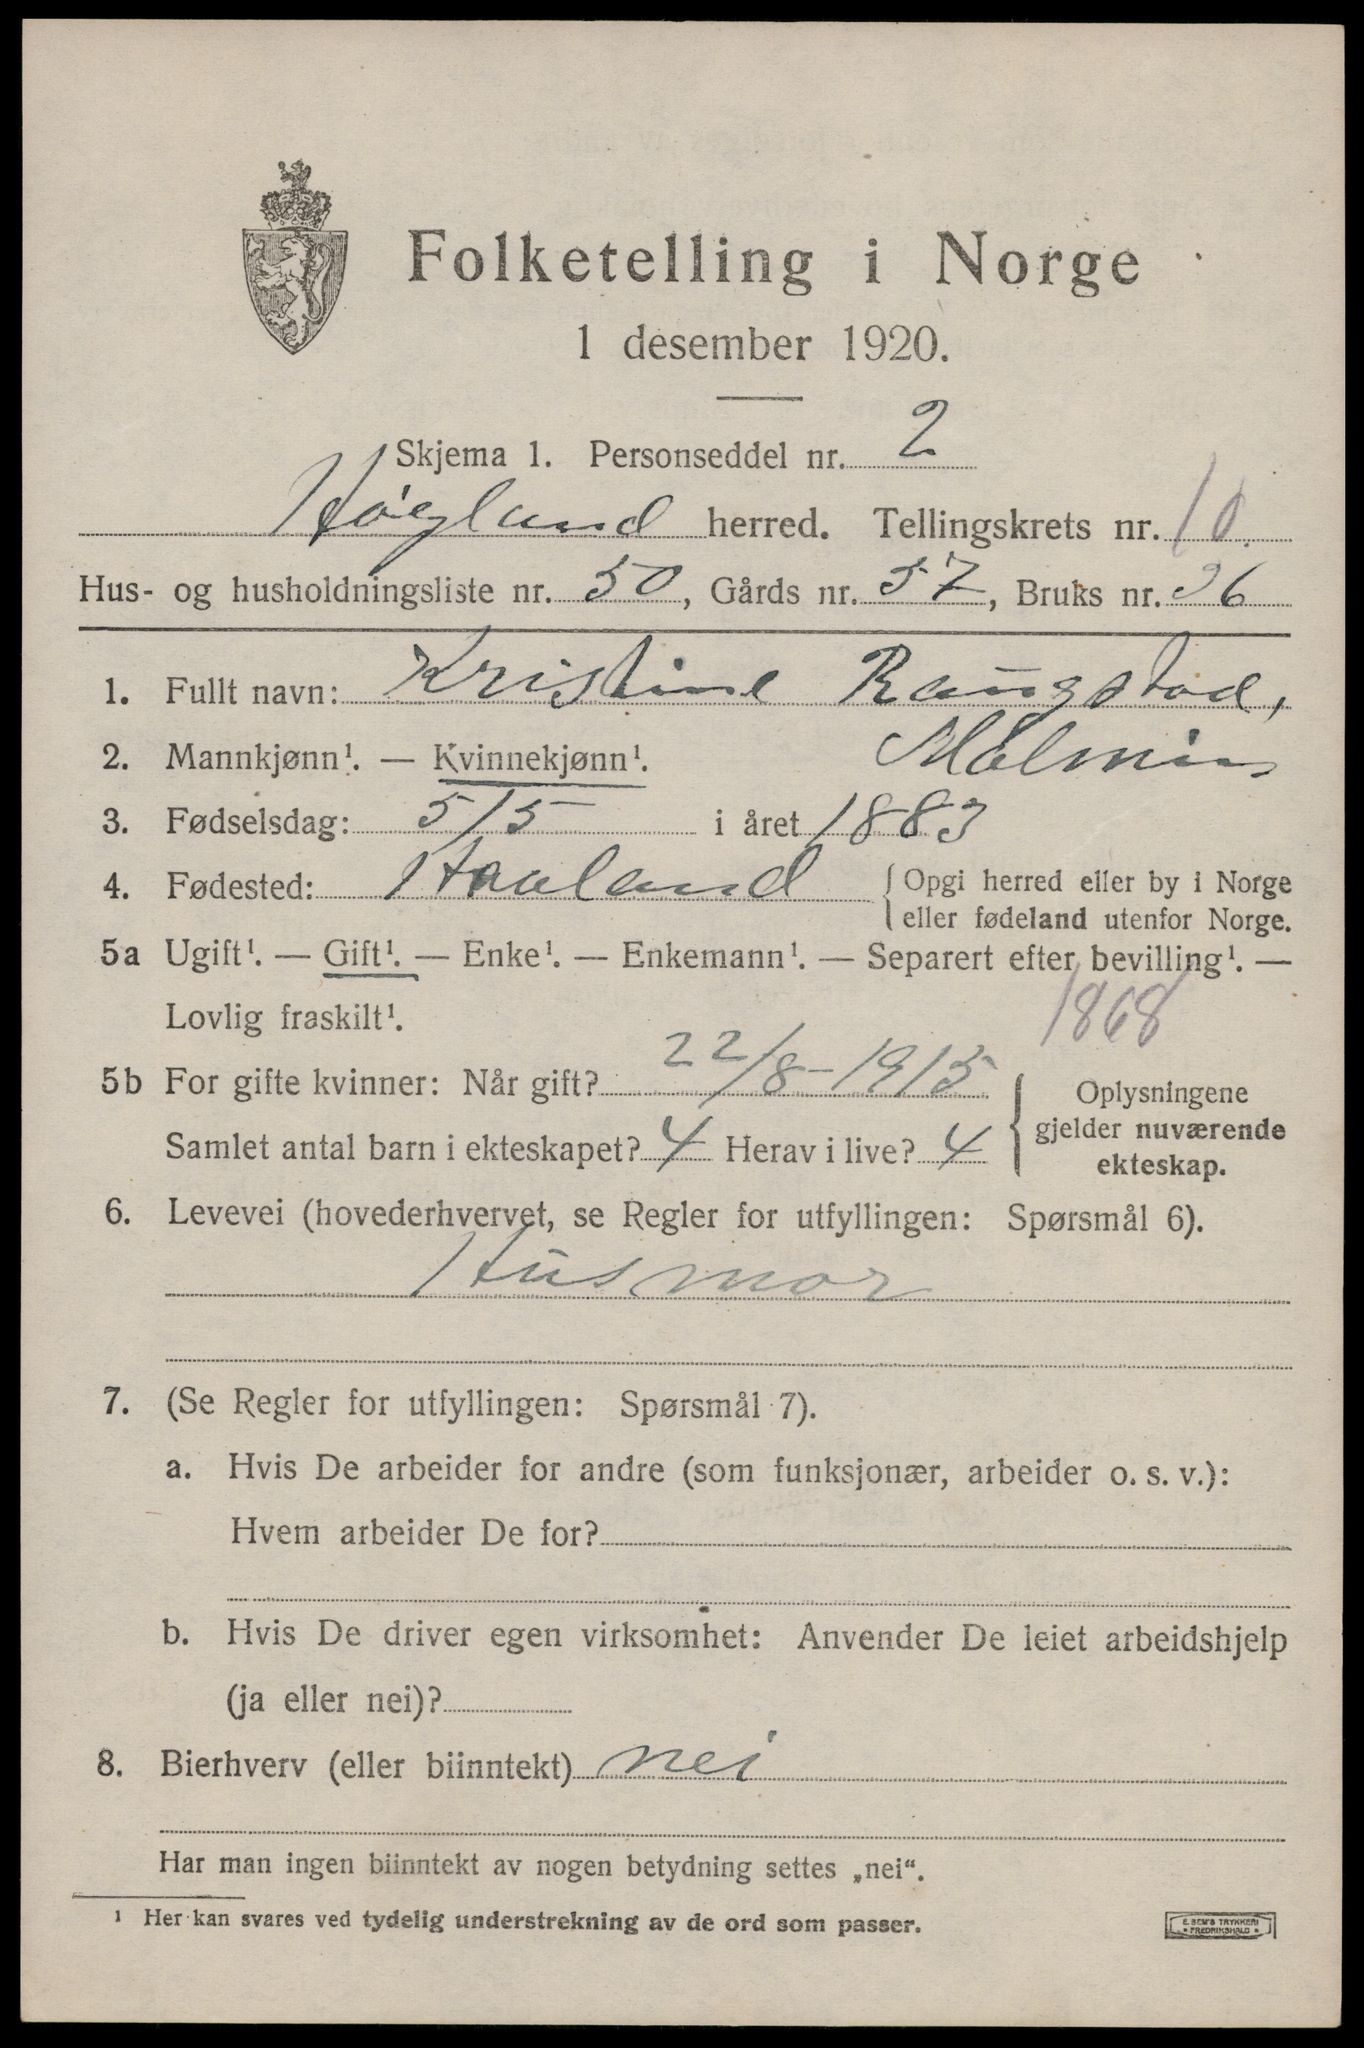 Folketelling i Norge
1 desember 1920.
Skjema 1. Personseddel nr. 2
Høgland herred. Tellingskrets nr. 10.
Hus- og husholdningsliste nr. 50, Gårds nr. 57, Bruks nr. 36
1. Fullt navn: Kristine Raugstad,
2. Mannkjønn¹. — Kvinnekjønn¹. Målmin
3. Fødselsdag: 5/5 i året 1883
4. Fødested: Haaland { Opgi herred eller by i Norge
eller fødeland utenfor Norge.
5a Ugift¹. — Gift¹. — Enke¹. — Enkemann¹. — Separert efter bevilling¹. —
Lovlig fraskilt¹. 1868
5b For gifte kvinner: Når gift? 22/8-1915 { Oplysningene
gjelder nuværende
Samlet antal barn i ekteskapet? 4 Herav i live? 4 ekteskap.
6. Levevei (hovederhvervet, se Regler for utfyllingen: Spørsmål 6).
Husmor
7. (Se Regler for utfyllingen: Spørsmål 7).
a. Hvis De arbeider for andre (som funksjonær, arbeider o. s. v.):
Hvem arbeider De for?
b. Hvis De driver egen virksomhet: Anvender De leiet arbeidshjelp
(ja eller nei)?
8. Bierhverv (eller biinntekt) nei
Har man ingen biinntekt av nogen betydning settes „nei“.
¹ Her kan svares ved tydelig understrekning av de ord som passer.
E. SEM'S TRYKKERI
* FREDRIKSHALD *